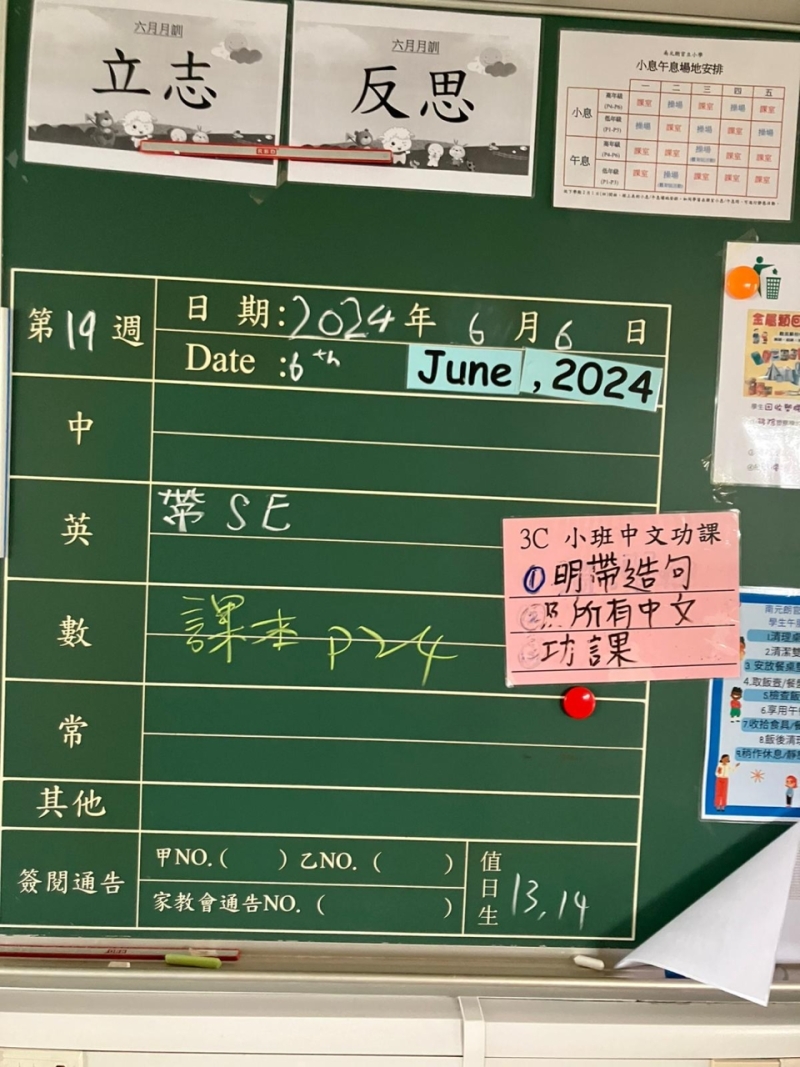 六月月訓
立志
六月月訓
反思
小息午息場地安排
一 二 三 四 五
小息
高年級 課室 操場 課室 操場 課室
低年級 操場 課室 操場 課室 操場
午息
高年級 課室 課室 操場 課室 課室
低年級 課室 操場 課室 課室 課室
第19週
日期:2024年6月6日
Date :6th June ,2024
中
英 帶 SE
數 課本 P24
常
其他
簽閱通告
甲NO.( ) 乙NO. ( )
家教會通告NO. ( )
值日生 13,14
3C 小班中文功課
① 明帶造句
所有中文
功課
學生午
1.清理桌
2.清潔雙
3 安放餐桌
4.取飯壺/餐
5.檢查飯
6.享用午
7.收拾食具/餐
8.飯後清
9.稍作休息/靜